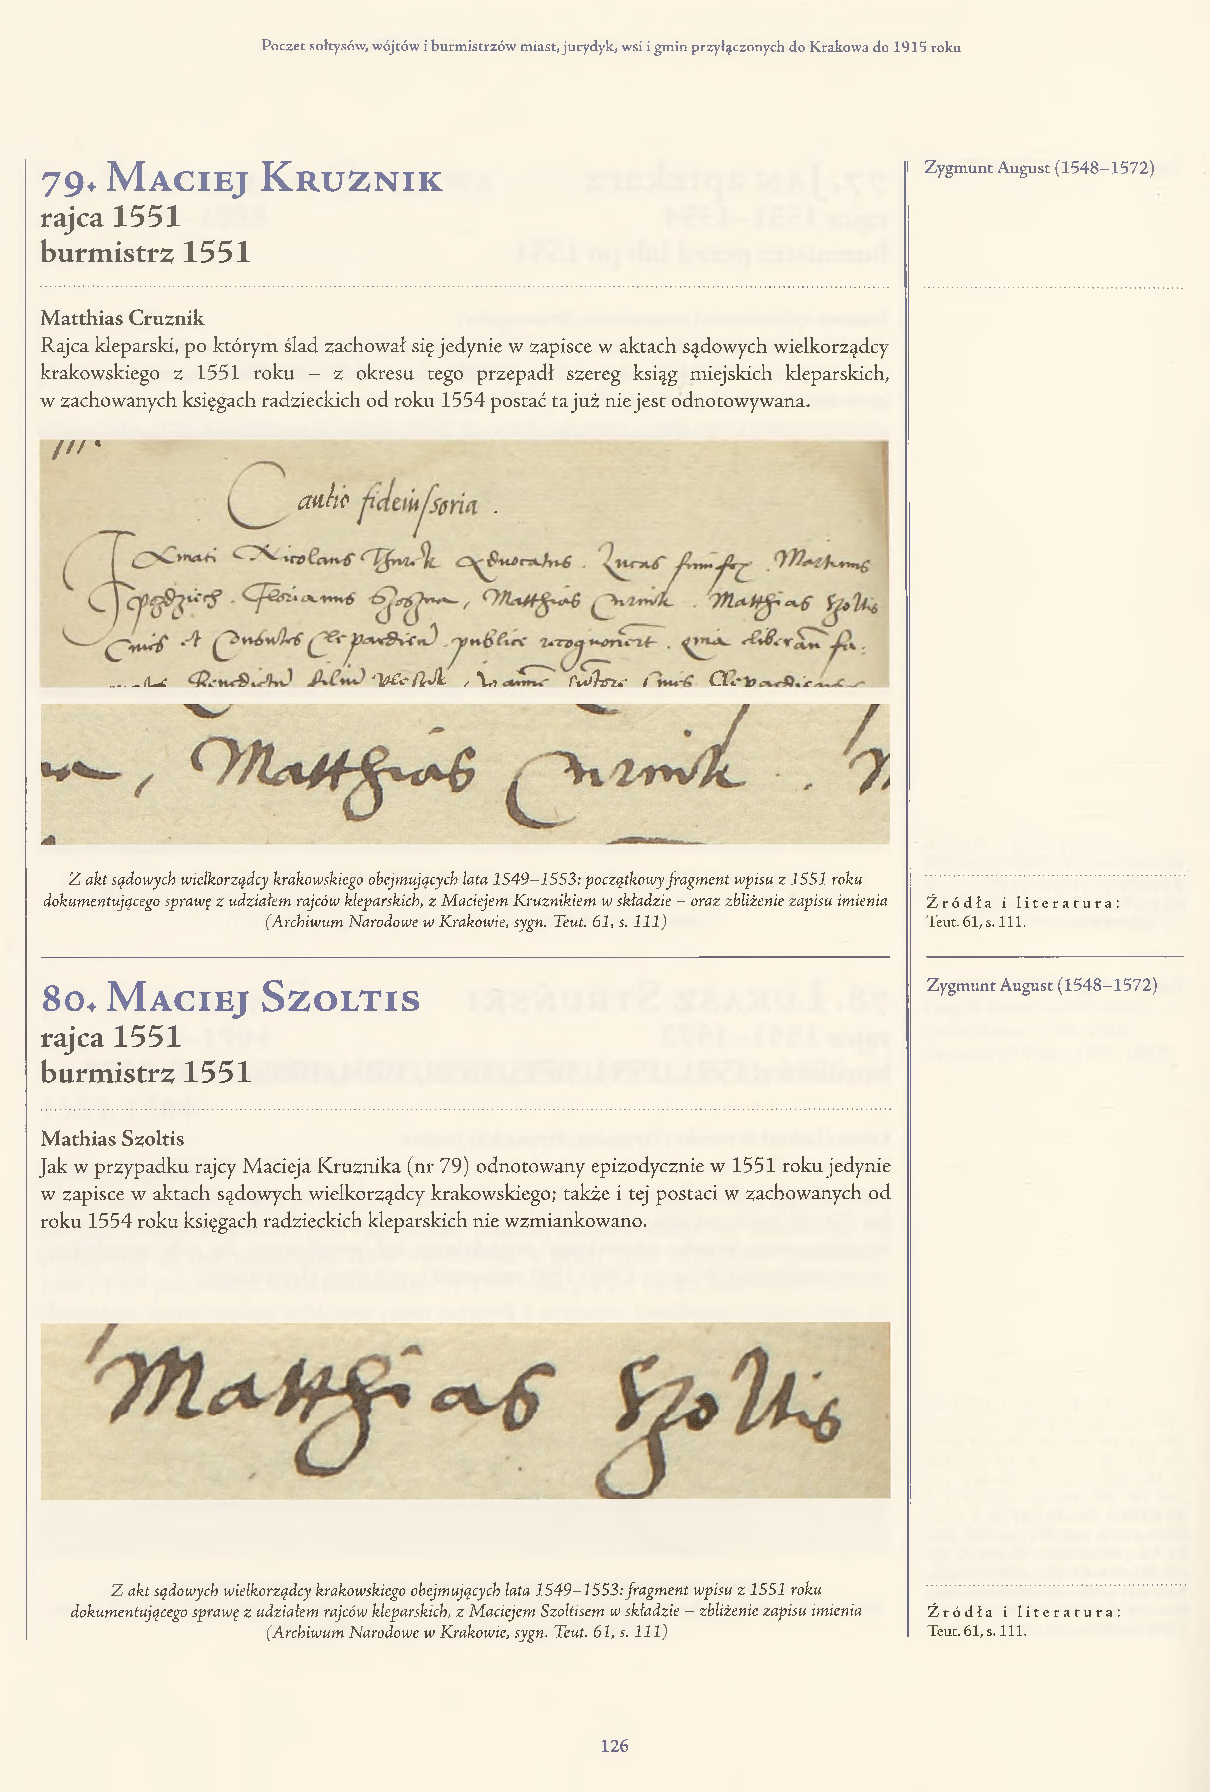 Poczet sołtysów, wójtów i burmistrzów miast, jurydyk, wsi i gmin przyłączonych do Krakowa do 1915 roku
79. Maciej Kruznik
rajca 1551
burmistrz 1551
Zygmunt August (1548–1572)
Matthias Cruznik
Rajca kleparski, po którym ślad zachował się jedynie w zapisce w aktach sądowych wielkorządcy
krakowskiego z 1551 roku – z okresu tego przepadł szereg ksiąg miejskich kleparskich,
w zachowanych księgach radzieckich od roku 1554 postać ta już nie jest odnotowywana.
111.
Cautio fideiussoria.
Nicolaus Advocatus. Lucas Martinus
Florianus Matthias Matthias Szoltis
et Consules publice
Matthias
Z akt sądowych wielkorządcy krakowskiego obejmujących lata 1549–1553: początkowy fragment wpisu z 1551 roku
dokumentującego sprawę z udziałem rajców kleparskich, z Maciejem Kruznikiem w składzie – oraz zbliżenie zapisu imienia
(Archiwum Narodowe w Krakowie, sygn. Teut. 61, s. 111)
Źródła i literatura:
Teut. 61, s. 111.
80. Maciej Szoltis
rajca 1551
burmistrz 1551
Zygmunt August (1548–1572)
Mathias Szoltis
Jak w przypadku rajcy Macieja Kruznika (nr 79) odnotowany epizodycznie w 1551 roku jedynie
w zapisce w aktach sądowych wielkorządcy krakowskiego; także i tej postaci w zachowanych od
roku 1554 roku księgach radzieckich kleparskich nie wzmiankowano.
Matthias Szoltis
Z akt sądowych wielkorządcy krakowskiego obejmujących lata 1549–1553: fragment wpisu z 1551 roku
dokumentującego sprawę z udziałem rajców kleparskich, z Maciejem Szoltisem w składzie – zbliżenie zapisu imienia
(Archiwum Narodowe w Krakowie, sygn. Teut. 61, s. 111)
Źródła i literatura:
Teut. 61, s. 111.
126